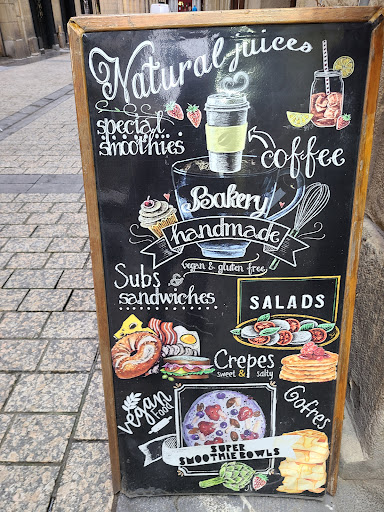 Natural juices
special
smoothies
coffee
Bakery
handmade
vegan & gluten free
Subs &
sandwiches
SALADS
Crepes
sweet & salty
Vegan
FOOD
Gofres
SUPER
SMOOTHIE BOWLS